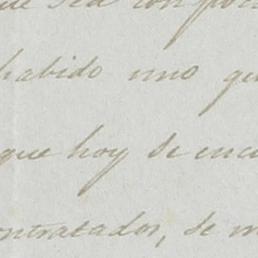 que sea con po
habido uno qu
que hoy se encu
ontratados, se m